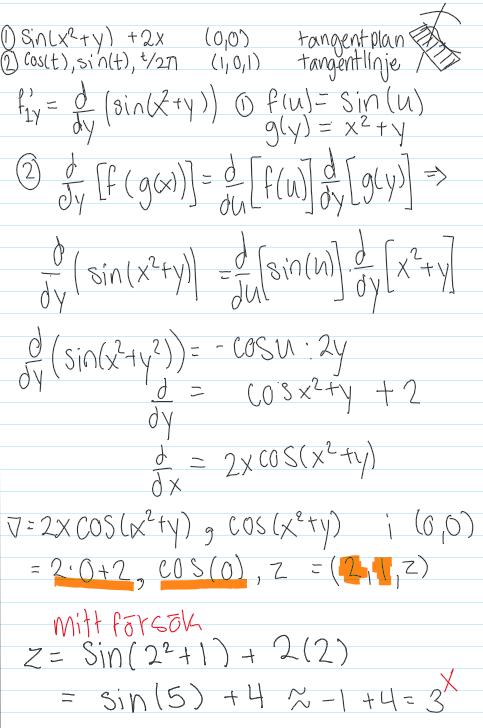 ① sin(x²+y) +2x (0,0) tangentplan
② cos(t), sin(t), t/2π (1,0,1) tangentlinje
f'₁y = d/dy (sin(x²+y)) ① f(u) = sin(u)
g(y) = x²+y
② d/dy [f(g(x))] = d/du [f(u)] d/dy [g(y)] ⇒
d/dy (sin(x²+y)) = d/du [sin(u)] · d/dy [x²+y]
d/dy (sin(x²+y²)) = -cosu · 2y
d/dy = cosx²+y +2
d/dx = 2xcos(x²+y)
∇ = 2xcos(x²+y), cos(x²+y) i (0,0)
= 2·0+2, cos(0), z = (2,1,z)
mitt försök
z = sin(2²+1) + 2(2)
= sin(5) +4 ≈ -1 +4 = 3 x